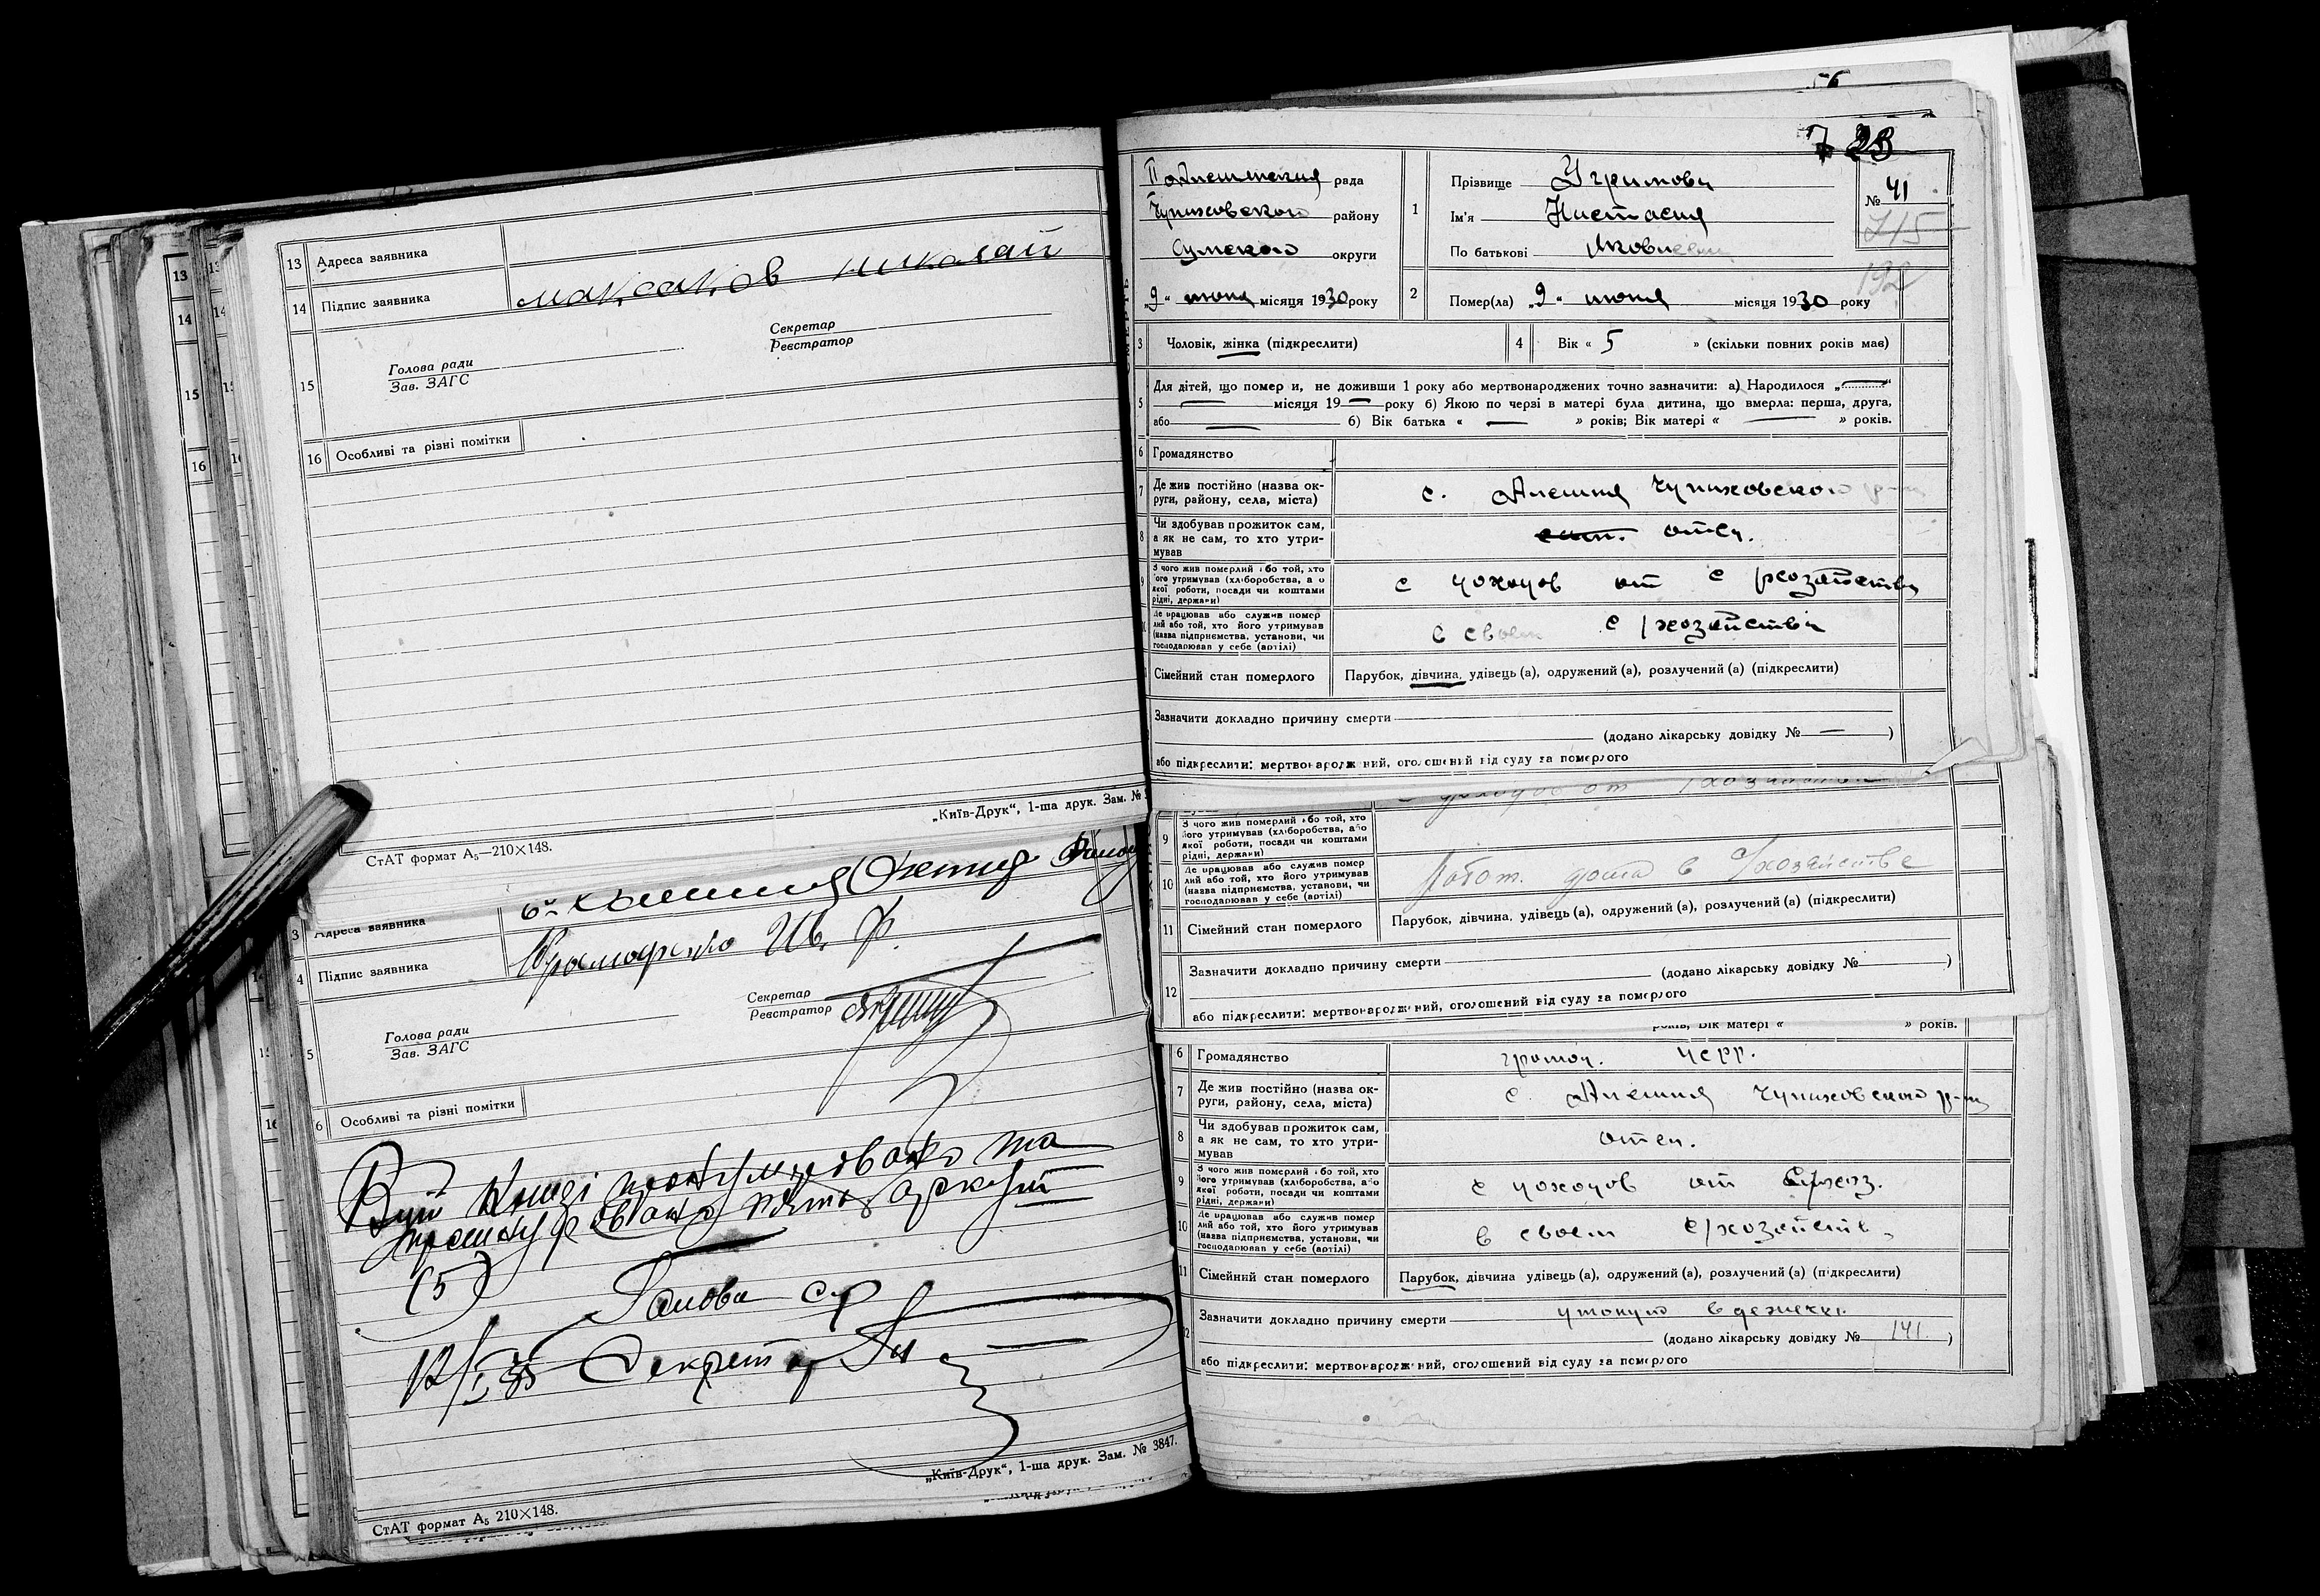 13 Адреса заявника
14 Підпис заявника Максаков Николай
Секретар
Реєстратор
15
Голова ради
Зав. ЗАГС
16 Особливі та різні помітки
„Київ-Друк“, 1-ша друк. Зам. №
СтАТ формат А₅—210×148.
3 Адреса заявника
4 Підпис заявника Ив. Ф.
Секретар
Реєстратор
5
Голова ради
Зав. ЗАГС
6 Особливі та різні помітки
В цій книзі пронумеровано та
прошнуровано пять аркушів
(5)
Голова с/р
12/I 35 Секретар
„Київ-Друк“, 1-ша друк. Зам. № 3847.
СтАТ формат А₅ 210×148.
56
7 28
рада
Чупаховского району
Сумского округи
„9“ июня місяця 1930 року
1
Прізвище Угримова
Ім'я Настасия
По батькові Яковлевн
№ 41
715
192
2 Помер(ла) „9“ июня місяця 1930 року
3 Чоловік, жінка (підкреслити)
4 Вік « 5 » (скільки повних років має)
5 Для дітей, що померли, не доживши 1 року або мертвонароджених точно зазначити: а) Народилося „—“
— місяця 19 — року б) Якою по черзі в матері була дитина, що вмерла: перша, друга,
або — б) Вік батька « — » років; Вік матері « — » років.
6 Громадянство
7 Де жив постійно (назва ок-
руги, району, села, міста) с. Алешня Чупаховского р-на
8 Чи здобував прожиток сам,
а як не сам, то хто утри-
мував сам. отец.
9 З чого жив померлий або той, хто
його утримував (хліборобства, або
якої роботи, посади чи коштами
рідні, держави) с доходов от с/хозяйства
Де працював або служив помер
лий або той, хто його утримував
(назва підприємства, установи, чи
господарював у себе (артілі) в своем с/хозяйстве
Сімейний стан померлого Парубок, дівчина, удівець (а), одружений (а), розлучений (а) (підкреслити)
Зазначити докладно причину смерти
(додано лікарську довідку № — )
або підкреслити: мертвонароджений, оголошений від суду за померлого
доходов от /хозяйства
9 З чого жив померлий або той, хто
його утримував (хліборобства, або
якої роботи, посади чи коштами
рідні, держави)
10 Де працював або служив помер
лий або той, хто його утримував
(назва підприємства, установи, чи
господарював у себе (артілі) Работ. дома в с/хозяйстве
11 Сімейний стан померлого Парубок, дівчина, удівець (а), одружений (а), розлучений (а) (підкреслити)
12 Зазначити докладно причину смерти
(додано лікарську довідку № )
або підкреслити: мертвонароджений, оголошений від суду за померлого
років; Вік матері « » років.
6 Громадянство УСРР.
7 Де жив постійно (назва ок-
руги, району, села, міста) с Алешня Чупаховского р-на
8 Чи здобував прожиток сам,
а як не сам, то хто утри-
мував отец.
9 З чого жив померлий або той, хто
його утримував (хліборобства, або
якої роботи, посади чи коштами
рідні, держави) с доходов от с/хоз.
10 Де працював або служив помер
лий або той, хто його утримував
(назва підприємства, установи, чи
господарював у себе (артілі) в своем с/хозяйств.
11 Сімейний стан померлого Парубок, дівчина удівець (а), одружений (а), розлучений (а) (підкреслити)
Зазначити докладно причину смерти утонул в
(додано лікарську довідку № 141 )
або підкреслити: мертвонароджений, оголошений від суду за померлого